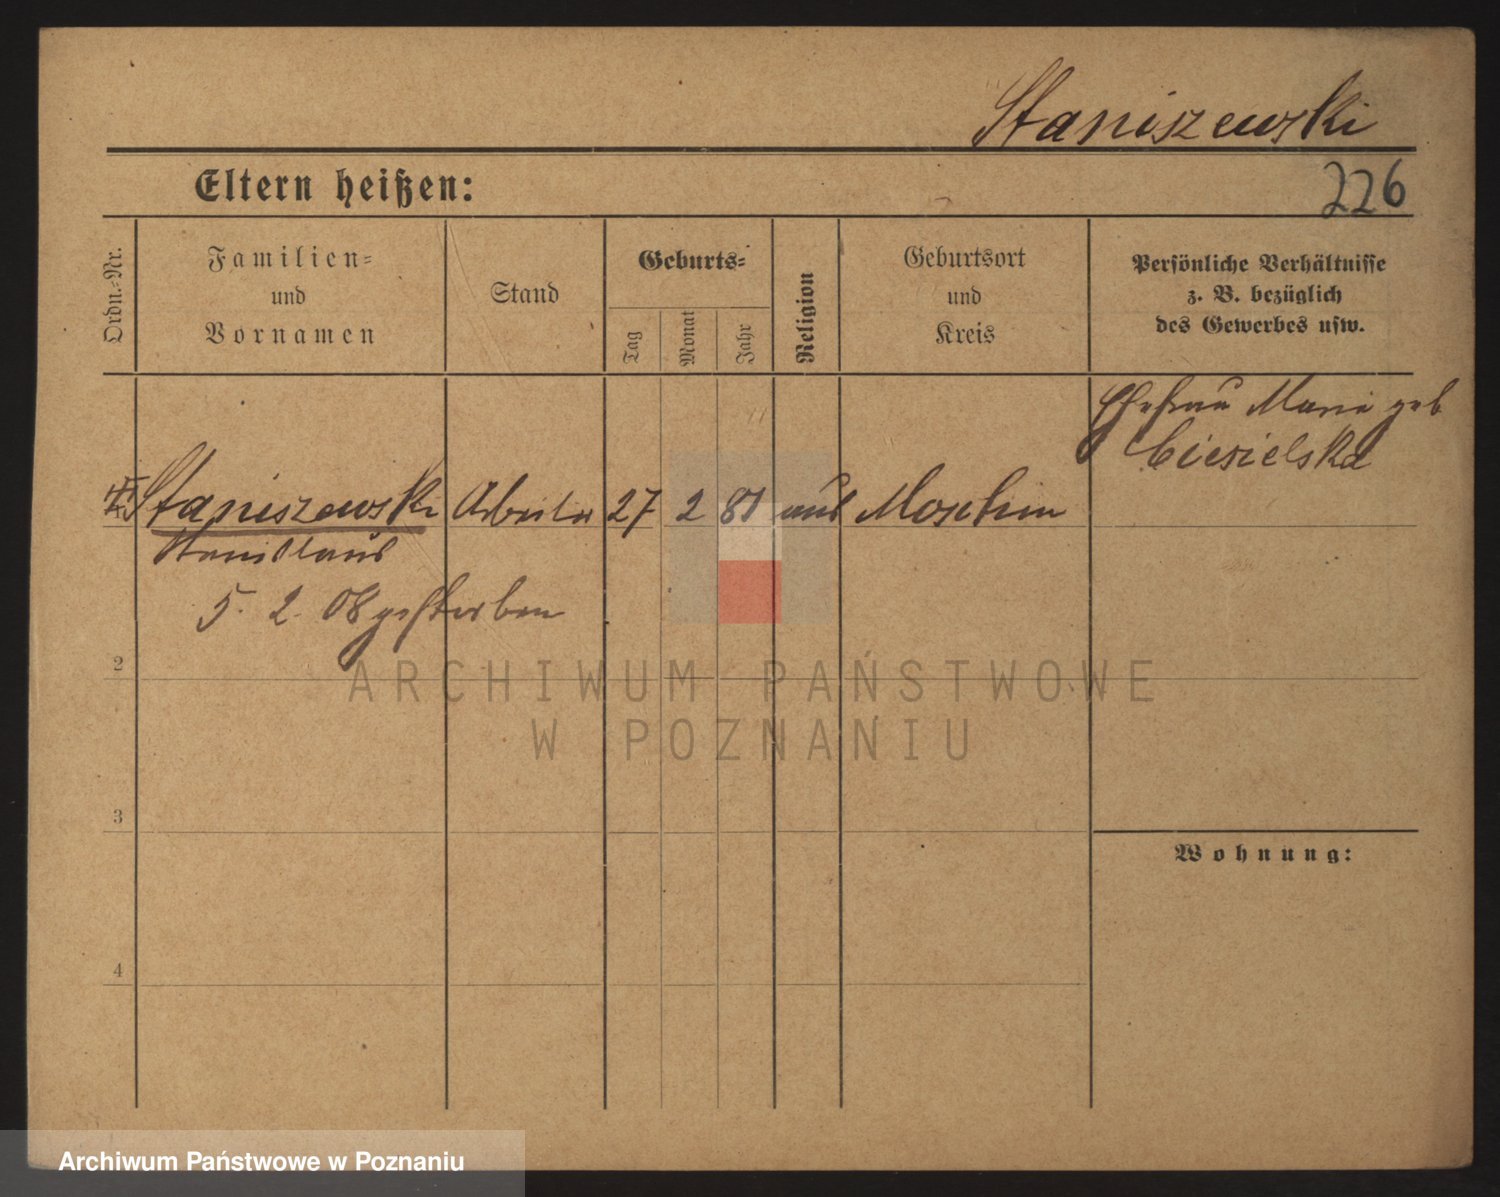 Staniszewski
Eltern heißen:
226
Ordn.-Nr.
Familien-
und
Vornamen
Stand
Geburts-
Tag
Monat
Jahr
Religion
Geburtsort
und
Kreis
Persönliche Verhältnisse
z. B. bezüglich
des Gewerbes usw.
Ehefrau Marie geb
Ciesielska
Staniszewski Arbeiter 27 2 81 aus Moschin
Stanislaus
5. 2. 08 gestorben
2
ARCHIWUM PAŃSTWOWE
W POZNANIU
3
Wohnung:
4
Archiwum Państwowe w Poznaniu